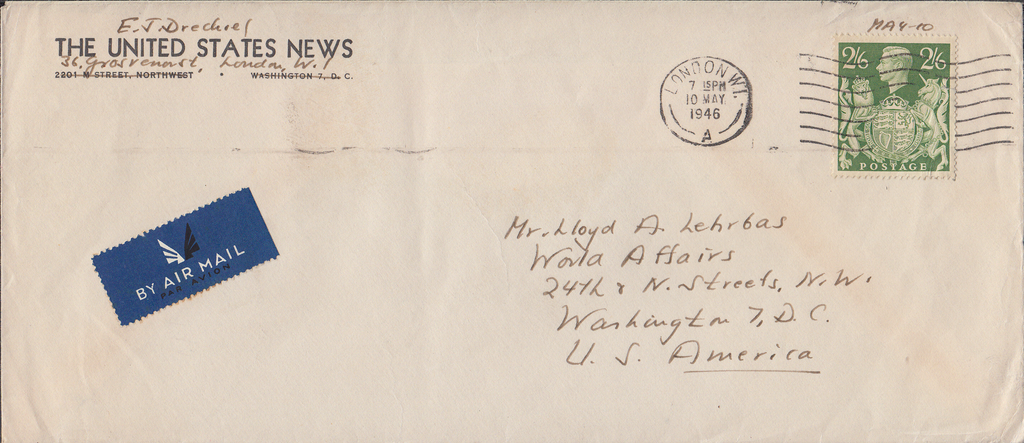 E. J. Drechsel
THE UNITED STATES NEWS
36, Grosvenor St., London, W.1
2201 M STREET, NORTHWEST • WASHINGTON 7, D. C.
MAY-10
LONDON W.1.
7 15PM
10 MAY
1946
A
2/6 2/6
POSTAGE
BY AIR MAIL
PAR AVION
Mr. Lloyd A. Lehrbas
World Affairs
24th & N. Streets, N.W.
Washington 7, D.C.
U. S. America